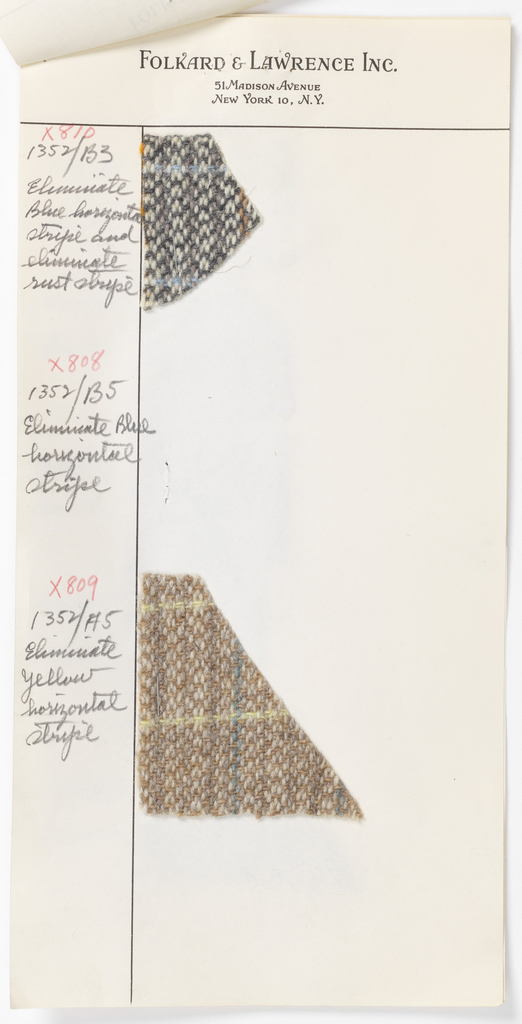 FOLKARD & LAWRENCE INC.
51 MADISON AVENUE
NEW YORK 10, N.Y.
X810
1352/B3
Eliminate
Blue horizontal
stripe and
eliminate
rust stripe
X808
1352/B5
Eliminate Blue
horizontal
stripe
X809
1352/A5
Eliminate
yellow
horizontal
stripe